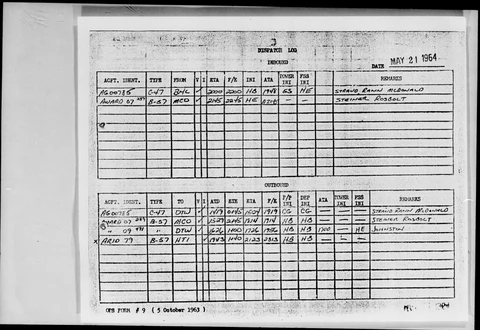 DISPATCH LOG
INBOUND
DATE MAY 21 1964
ACFT. IDENT. TYPE FROM V I ETA F/E INI ATA TOWER INI FSS INI REMARKS
AG00785 C-47 ✓ 2000 2200 HB 1948 ES HE STRAND RANN McDONALD
AWARD 07 B-57 MCO ✓ 2145 2245 HE — — STEINER ROSBOLT
OUTBOUND
ACFT. IDENT. TYPE TO V I ATD ETE ETA F/E F/P INI DEP INI ATA TOWER INI FSS INI REMARKS
AG00785 C-47 DTW ✓ 1919 CG CG — — — STRAND RANN McDONALD
AWARD 07 B-57 MCO ✓ 1529 1914 HB HB — — — STEINER ROSBOLT
" 09 " DTW ✓ 1626 1726 HB HB 1700 — HE JOHNSTON
x B-57 ✓ 1943 2123 2313 HB HB — — —
OPS FORM # 9 ( 5 October 1963)